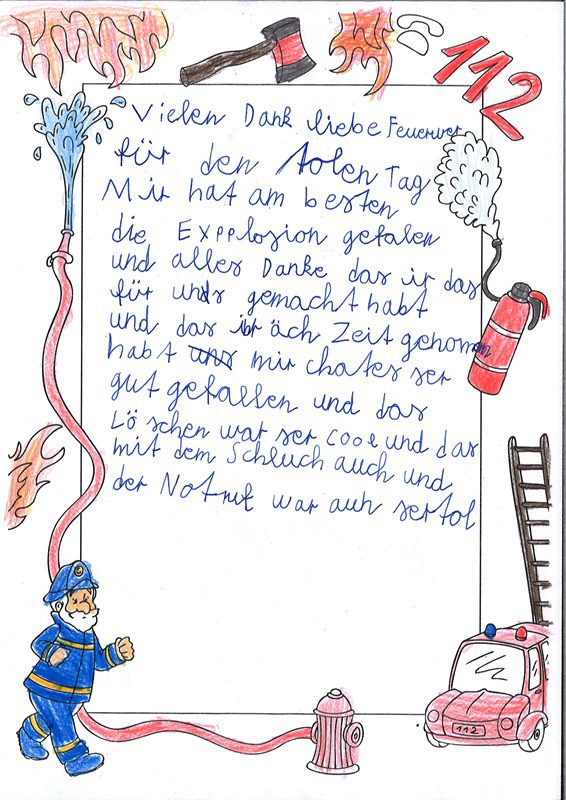 112
Vielen Dank liebe Feuerwer
für den tolen Tag
Mir hat am besten
die Expplosion gefalen
und alles Danke das ir das
für unds gemacht habt
und das ibr äch Zeit genomm
habt uns mir chates ser
gut gefallen und das
Lö schen war ser cool und das
mit dem Schluch auch und
der Notruf war auh ser tol
112